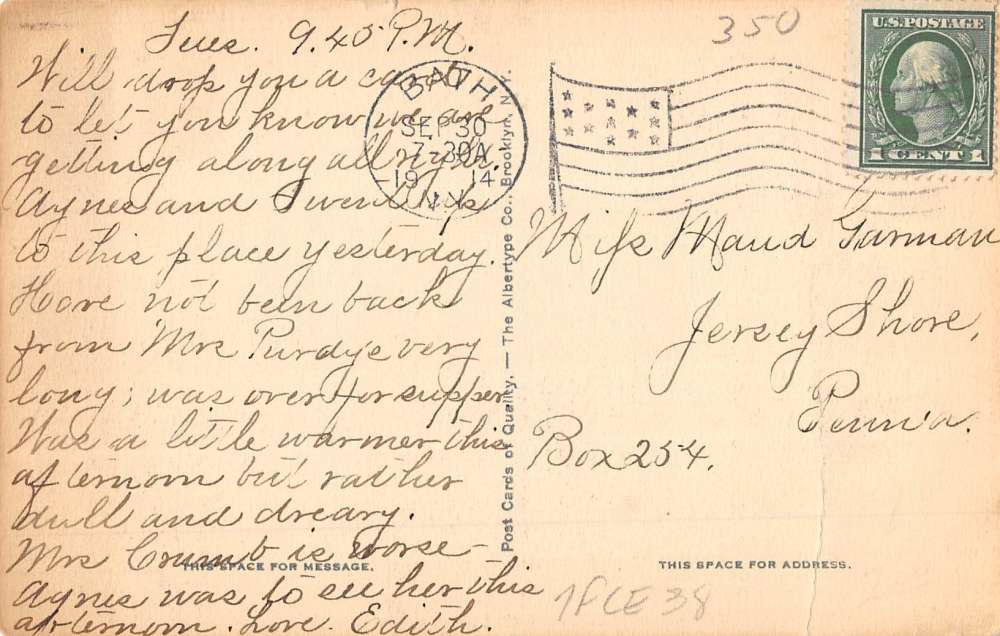 Tues. 9.45 P.M.
Will drop you a card
to let you know we are
getting along all right.
Agnes and I went up
to this place yesterday.
Have not been back
from Mrs Purdy's very
long; was over for supper
Was a little warmer this
afternoon but rather
dull and dreary.
Mrs Crumb is worse-
Agnes was to see her this
afternoon. Love. Edith.
THIS SPACE FOR MESSAGE.
Post Cards of Quality. — The Albertype Co., Brooklyn, N.Y.
BATH
SEP 30
7-30A
19 14
N.Y.
350
U.S. POSTAGE
1 CENT 1
Miss Maud Garman
Jersey Shore,
Penn'a.
Box 254.
THIS SPACE FOR ADDRESS.
1FCE38